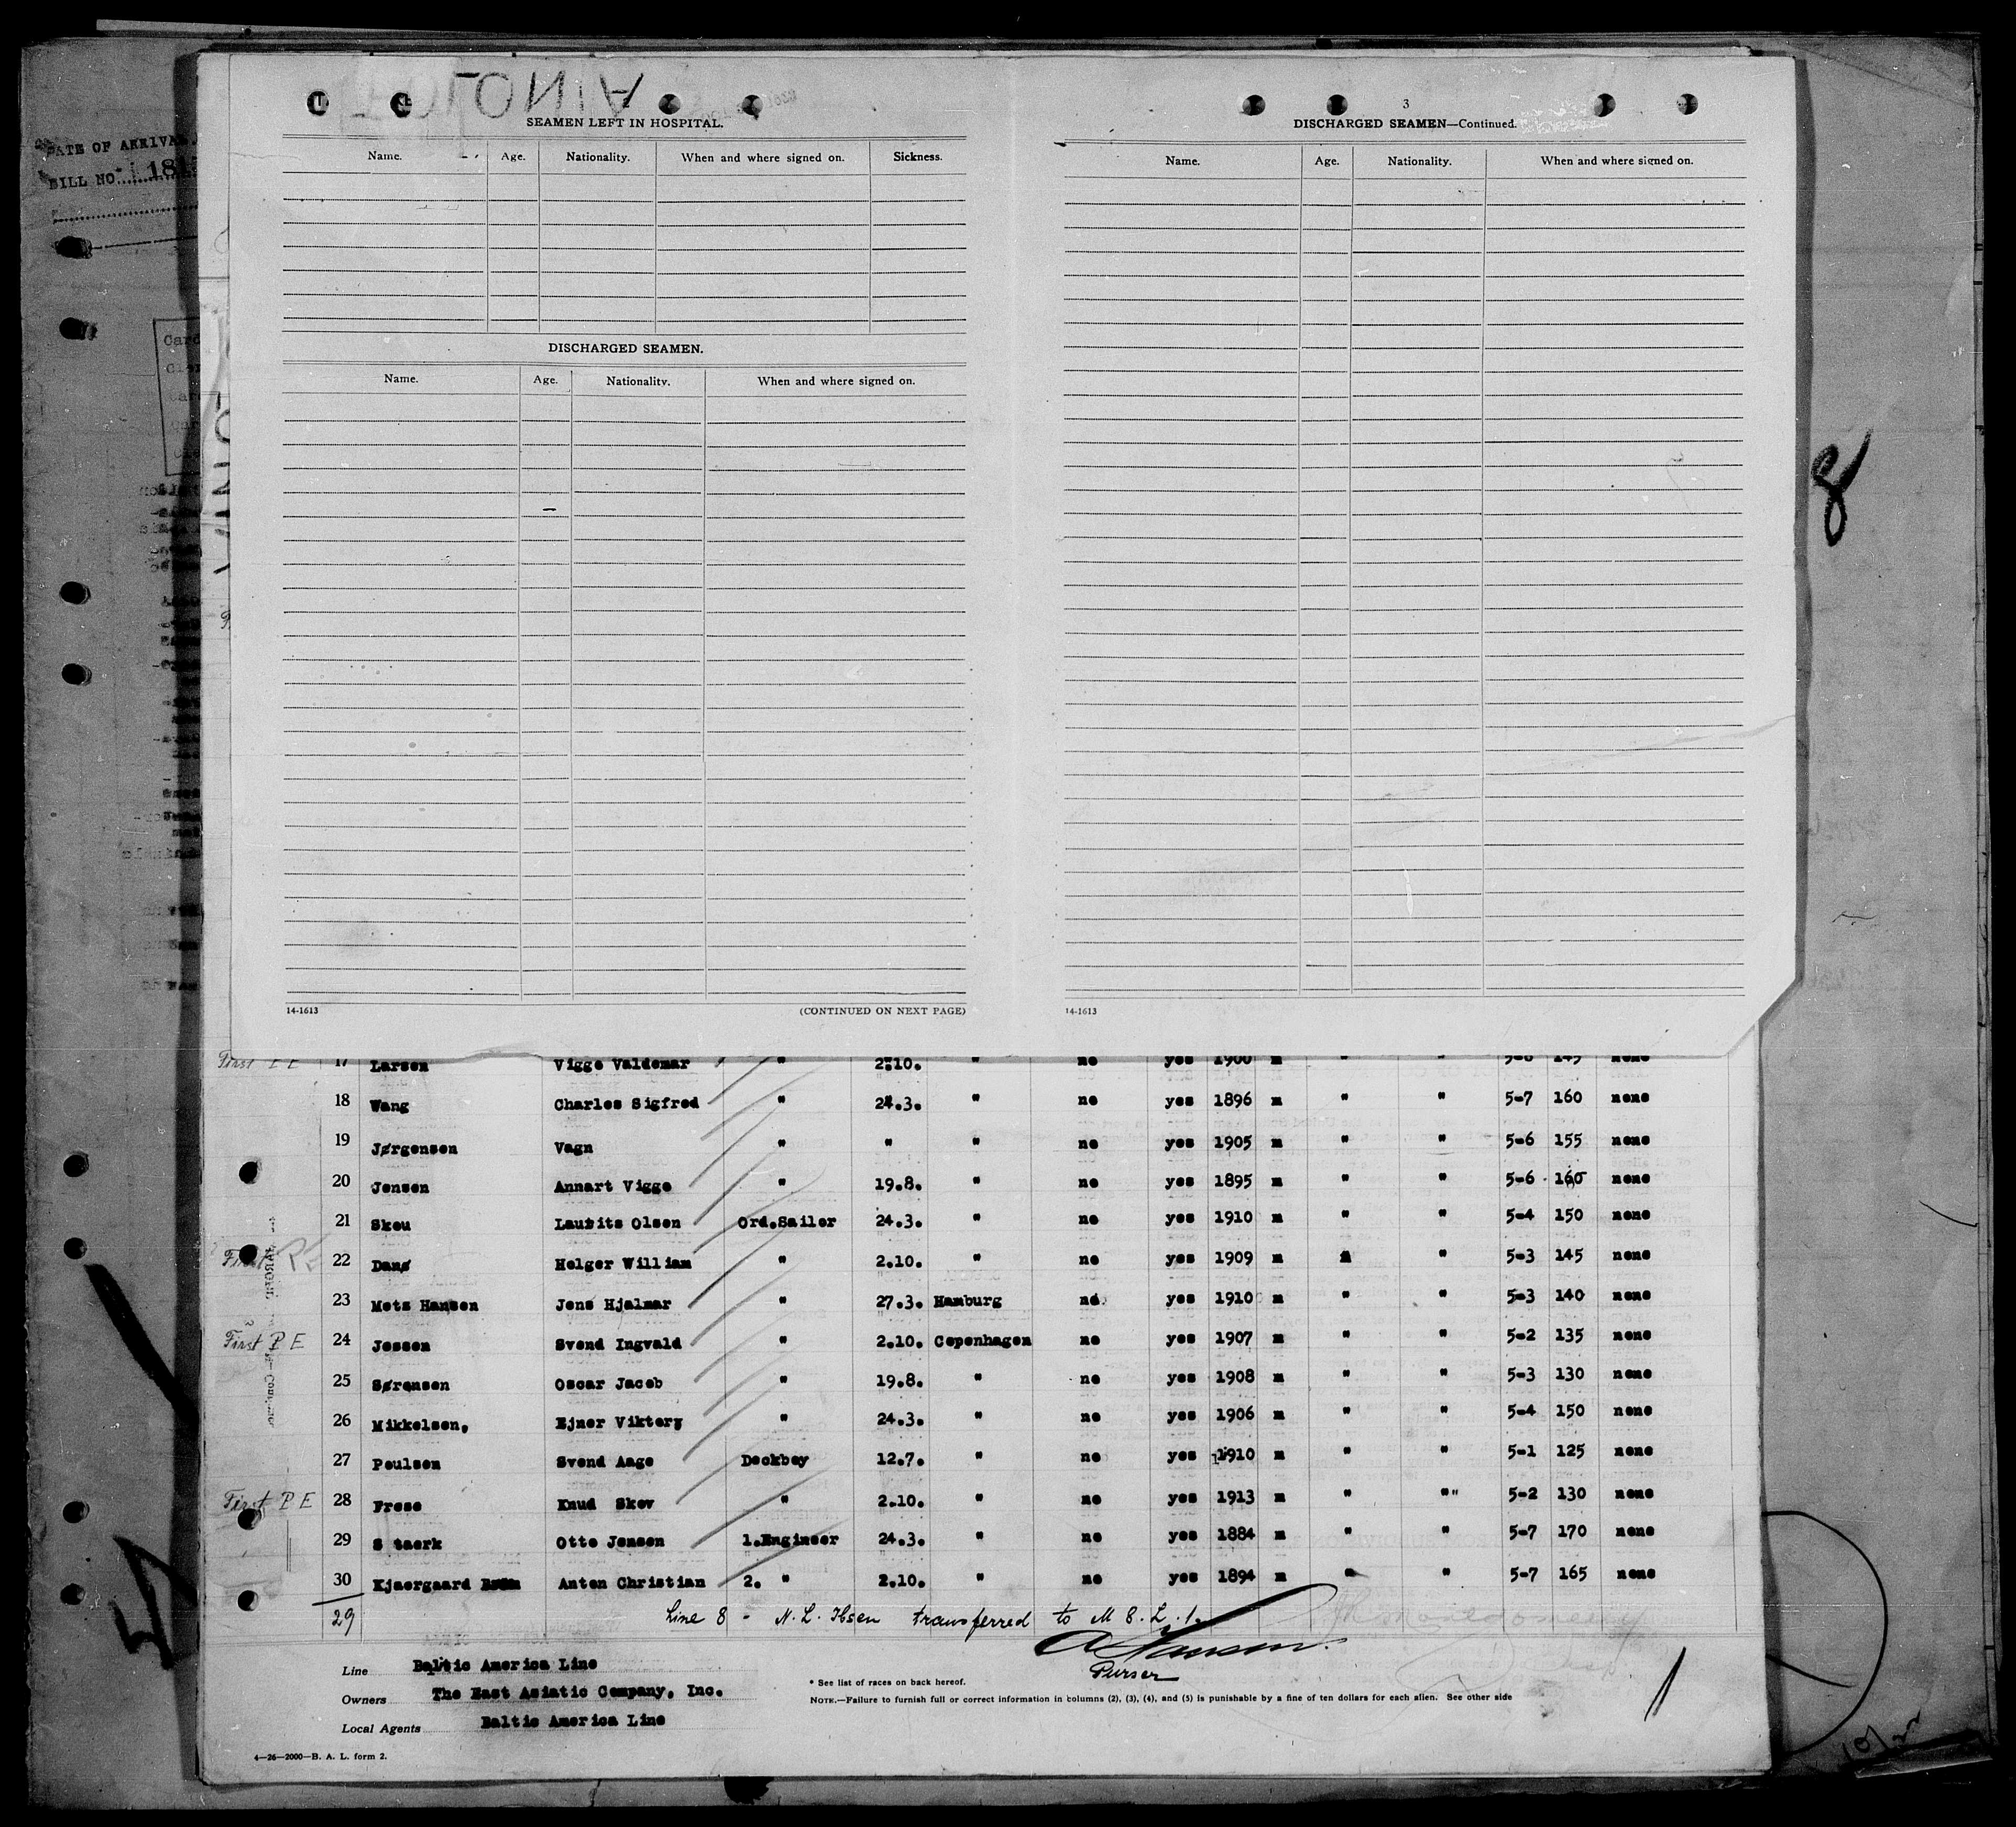 POLONIA
SEAMEN LEFT IN HOSPITAL.
Name. Age. Nationality. When and where signed on. Sickness.
DISCHARGED SEAMEN.
Name. Age. Nationality. When and where signed on.
14-1613 (CONTINUED ON NEXT PAGE)
3
DISCHARGED SEAMEN—Continued.
Name. Age. Nationality. When and where signed on.
14-1613
DATE OF ARRIVAL
BILL NO.
8
First P E 17 Larsen Viggo Valdemar " 2.10. " no yes 1900 m " " 5-6 145 none
18 Wang Charles Sigfred " 24.3. " no yes 1896 m " " 5-7 160 none
19 Jørgensen Vagn " " " no yes 1905 m " " 5-6 155 none
20 Jensen Annart Viggo " 19.8. " no yes 1895 m " " 5-6 160 none
21 Skou Laurits Olsen Ord.Sailor 24.3. " no yes 1910 m " " 5-4 150 none
First P E 22 Danø Holger William " 2.10. " no yes 1909 m " " 5-3 145 none
23 Metz Hansen Jens Hjalmar " 27.3. Hamburg no. yes 1910 m " " 5-3 140 none
First P E 24 Jessen Svend Ingvald " 2.10. Copenhagen no yes 1907 m " " 5-2 135 none
25 Sørensen Oscar Jacob " 19.8. " no yes 1908 m " " 5-3 130 none
26 Mikkelsen, Ejner Viktory " 24.3. " no yes 1906 m " " 5-4 150 none
27 Poulsen Svend Aage Deckboy 12.7. " no yes 1910 m " " 5-1 125 none
First P E 28 Frese Knud Skov " 2.10. " no yes 1913 m " " 5-2 130 none
29 S taerk Otto Jensen 1.Engineer 24.3. " no yes 1884 m " " 5-7 170 none
30 Kjaergaard Anton Christian 2. " 2.10. " no yes 1894 m " " 5-7 165 none
29 Line 8 - N. L. Ibsen transferred to M 8. L. 1.
A Hansen.
Purser
Line Baltic America Line
Owners The East Asiatic Company, Inc.
Local Agents Baltic America Line
* See list of races on back hereof.
NOTE.—Failure to furnish full or correct information in columns (2), (3), (4), and (5) is punishable by a fine of ten dollars for each alien. See other side
4—26—2000—B. A. L. form 2.